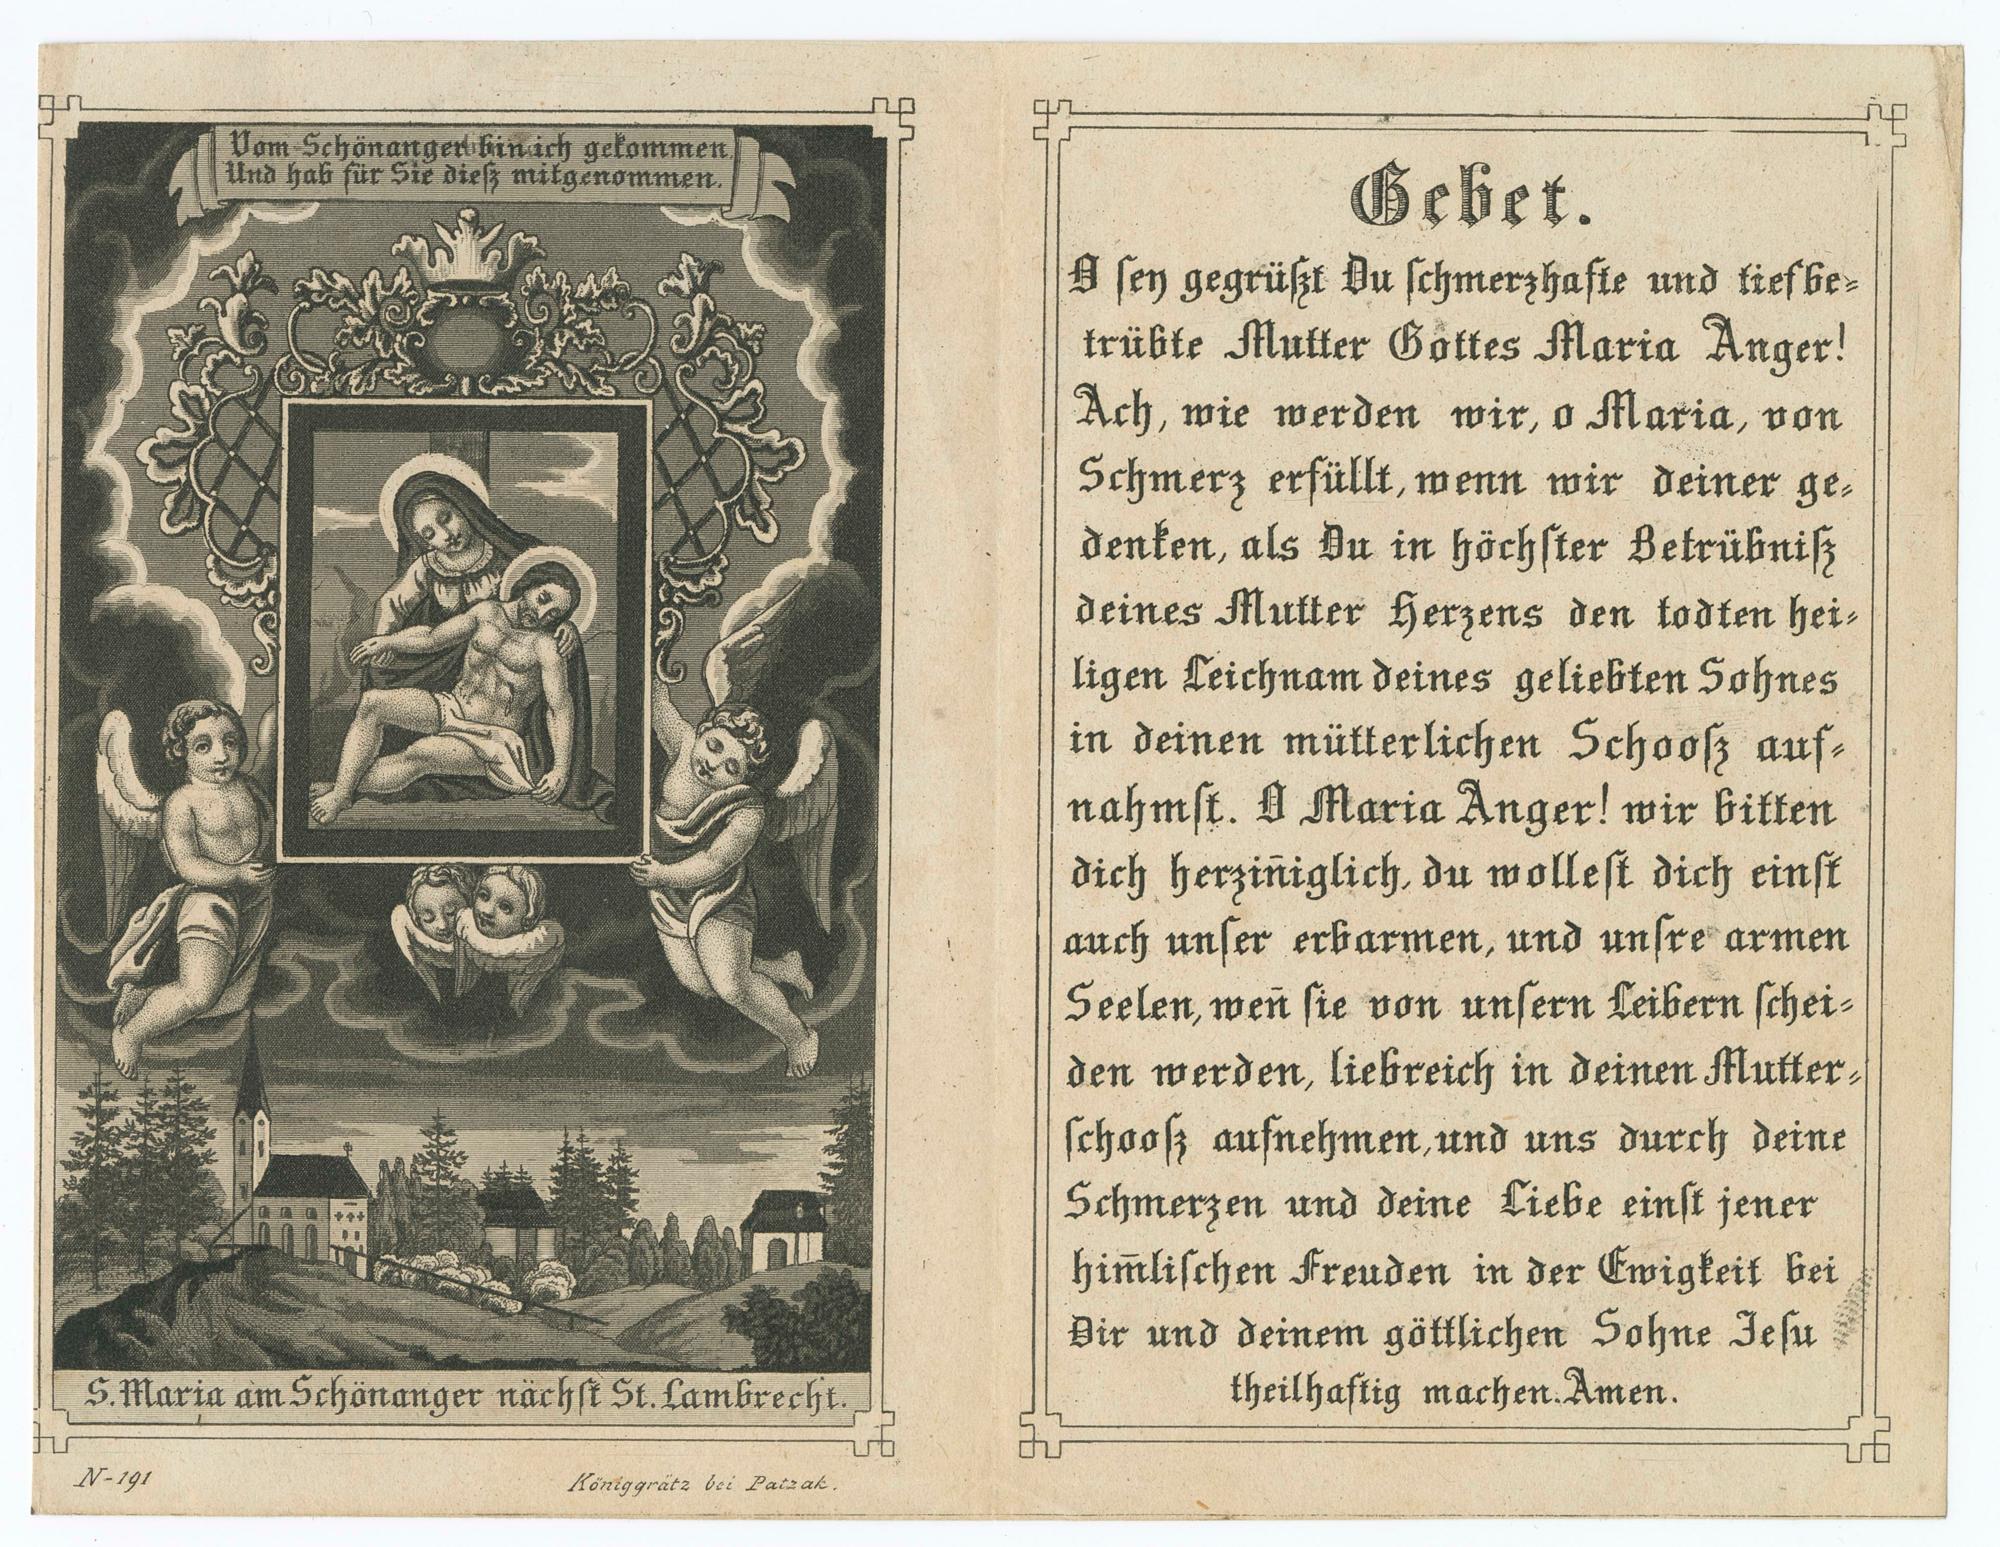 Vom Schönanger bin ich gekommen,
Und hab für Sie dieß mitgenommen.
S. Maria am Schönanger nächst St. Lambrecht.
N-191
Königgrätz bei Patzak.
Gebet.
O sey gegrüßt Du schmerzhafte und tiefbe=
trübte Mutter Gottes Maria Anger!
Ach, wie werden wir, o Maria, von
Schmerz erfüllt, wenn wir deiner ge=
denken, als Du in höchster Betrübniß
deines Mutter Herzens den todten hei=
ligen Leichnam deines geliebten Sohnes
in deinen mütterlichen Schooß auf=
nahmst. O Maria Anger! wir bitten
dich herzin̄iglich, du wollest dich einst
auch unser erbarmen, und unsre armen
Seelen, wen̄ sie von unsern Leibern schei=
den werden, liebreich in deinen Mutter=
schooß aufnehmen, und uns durch deine
Schmerzen und deine Liebe einst jener
him̄lischen Freuden in der Ewigkeit bei
Dir und deinem göttlichen Sohne Jesu
theilhaftig machen. Amen.